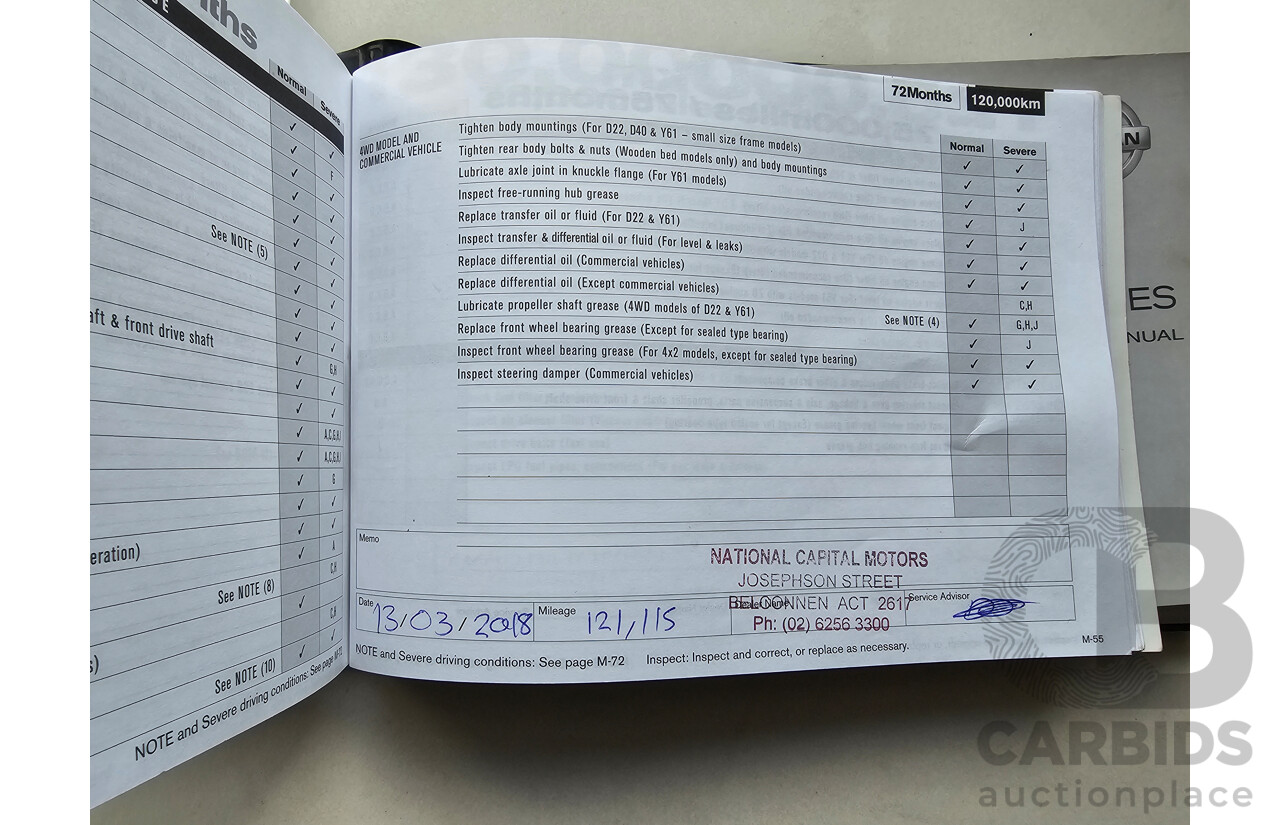 Normal Severe
✓ ✓
✓ F
✓ ✓
✓ ✓
✓ ✓
See NOTE (5) ✓ ✓
✓ ✓
✓ ✓
aft & front drive shaft
✓ G,H
✓ ✓
✓ ✓
✓ A,C,G,H,I
✓ A,C,G,H,I
✓ G
✓ ✓
✓ ✓
eration) ✓ A
C,H
See NOTE (8) ✓
C,H
✓
s) See NOTE (10) ✓
NOTE and Severe driving conditions: See page M-72
72Months 120,000km
4WD MODEL AND
COMMERCIAL VEHICLE
Normal Severe
Tighten body mountings (For D22, D40 & Y61 – small size frame models) ✓ ✓
Tighten rear body bolts & nuts (Wooden bed models only) and body mountings ✓ ✓
Lubricate axle joint in knuckle flange (For Y61 models) ✓ ✓
Inspect free-running hub grease ✓ J
Replace transfer oil or fluid (For D22 & Y61) ✓ ✓
Inspect transfer & differential oil or fluid (For level & leaks) ✓ ✓
Replace differential oil (Commercial vehicles) ✓ ✓
Replace differential oil (Except commercial vehicles) C,H
Lubricate propeller shaft grease (4WD models of D22 & Y61) See NOTE (4) ✓ G,H,J
Replace front wheel bearing grease (Except for sealed type bearing) ✓ J
Inspect front wheel bearing grease (For 4x2 models, except for sealed type bearing) ✓ ✓
Inspect steering damper (Commercial vehicles) ✓ ✓
Memo
NATIONAL CAPITAL MOTORS
JOSEPHSON STREET
BELCONNEN ACT 2617
Ph: (02) 6256 3300
Date 13/03/2018 Mileage 121,115 Service Advisor
NOTE and Severe driving conditions: See page M-72 Inspect: Inspect and correct, or replace as necessary. M-55
N
ES
NUAL
CARBIDS
auctionplace